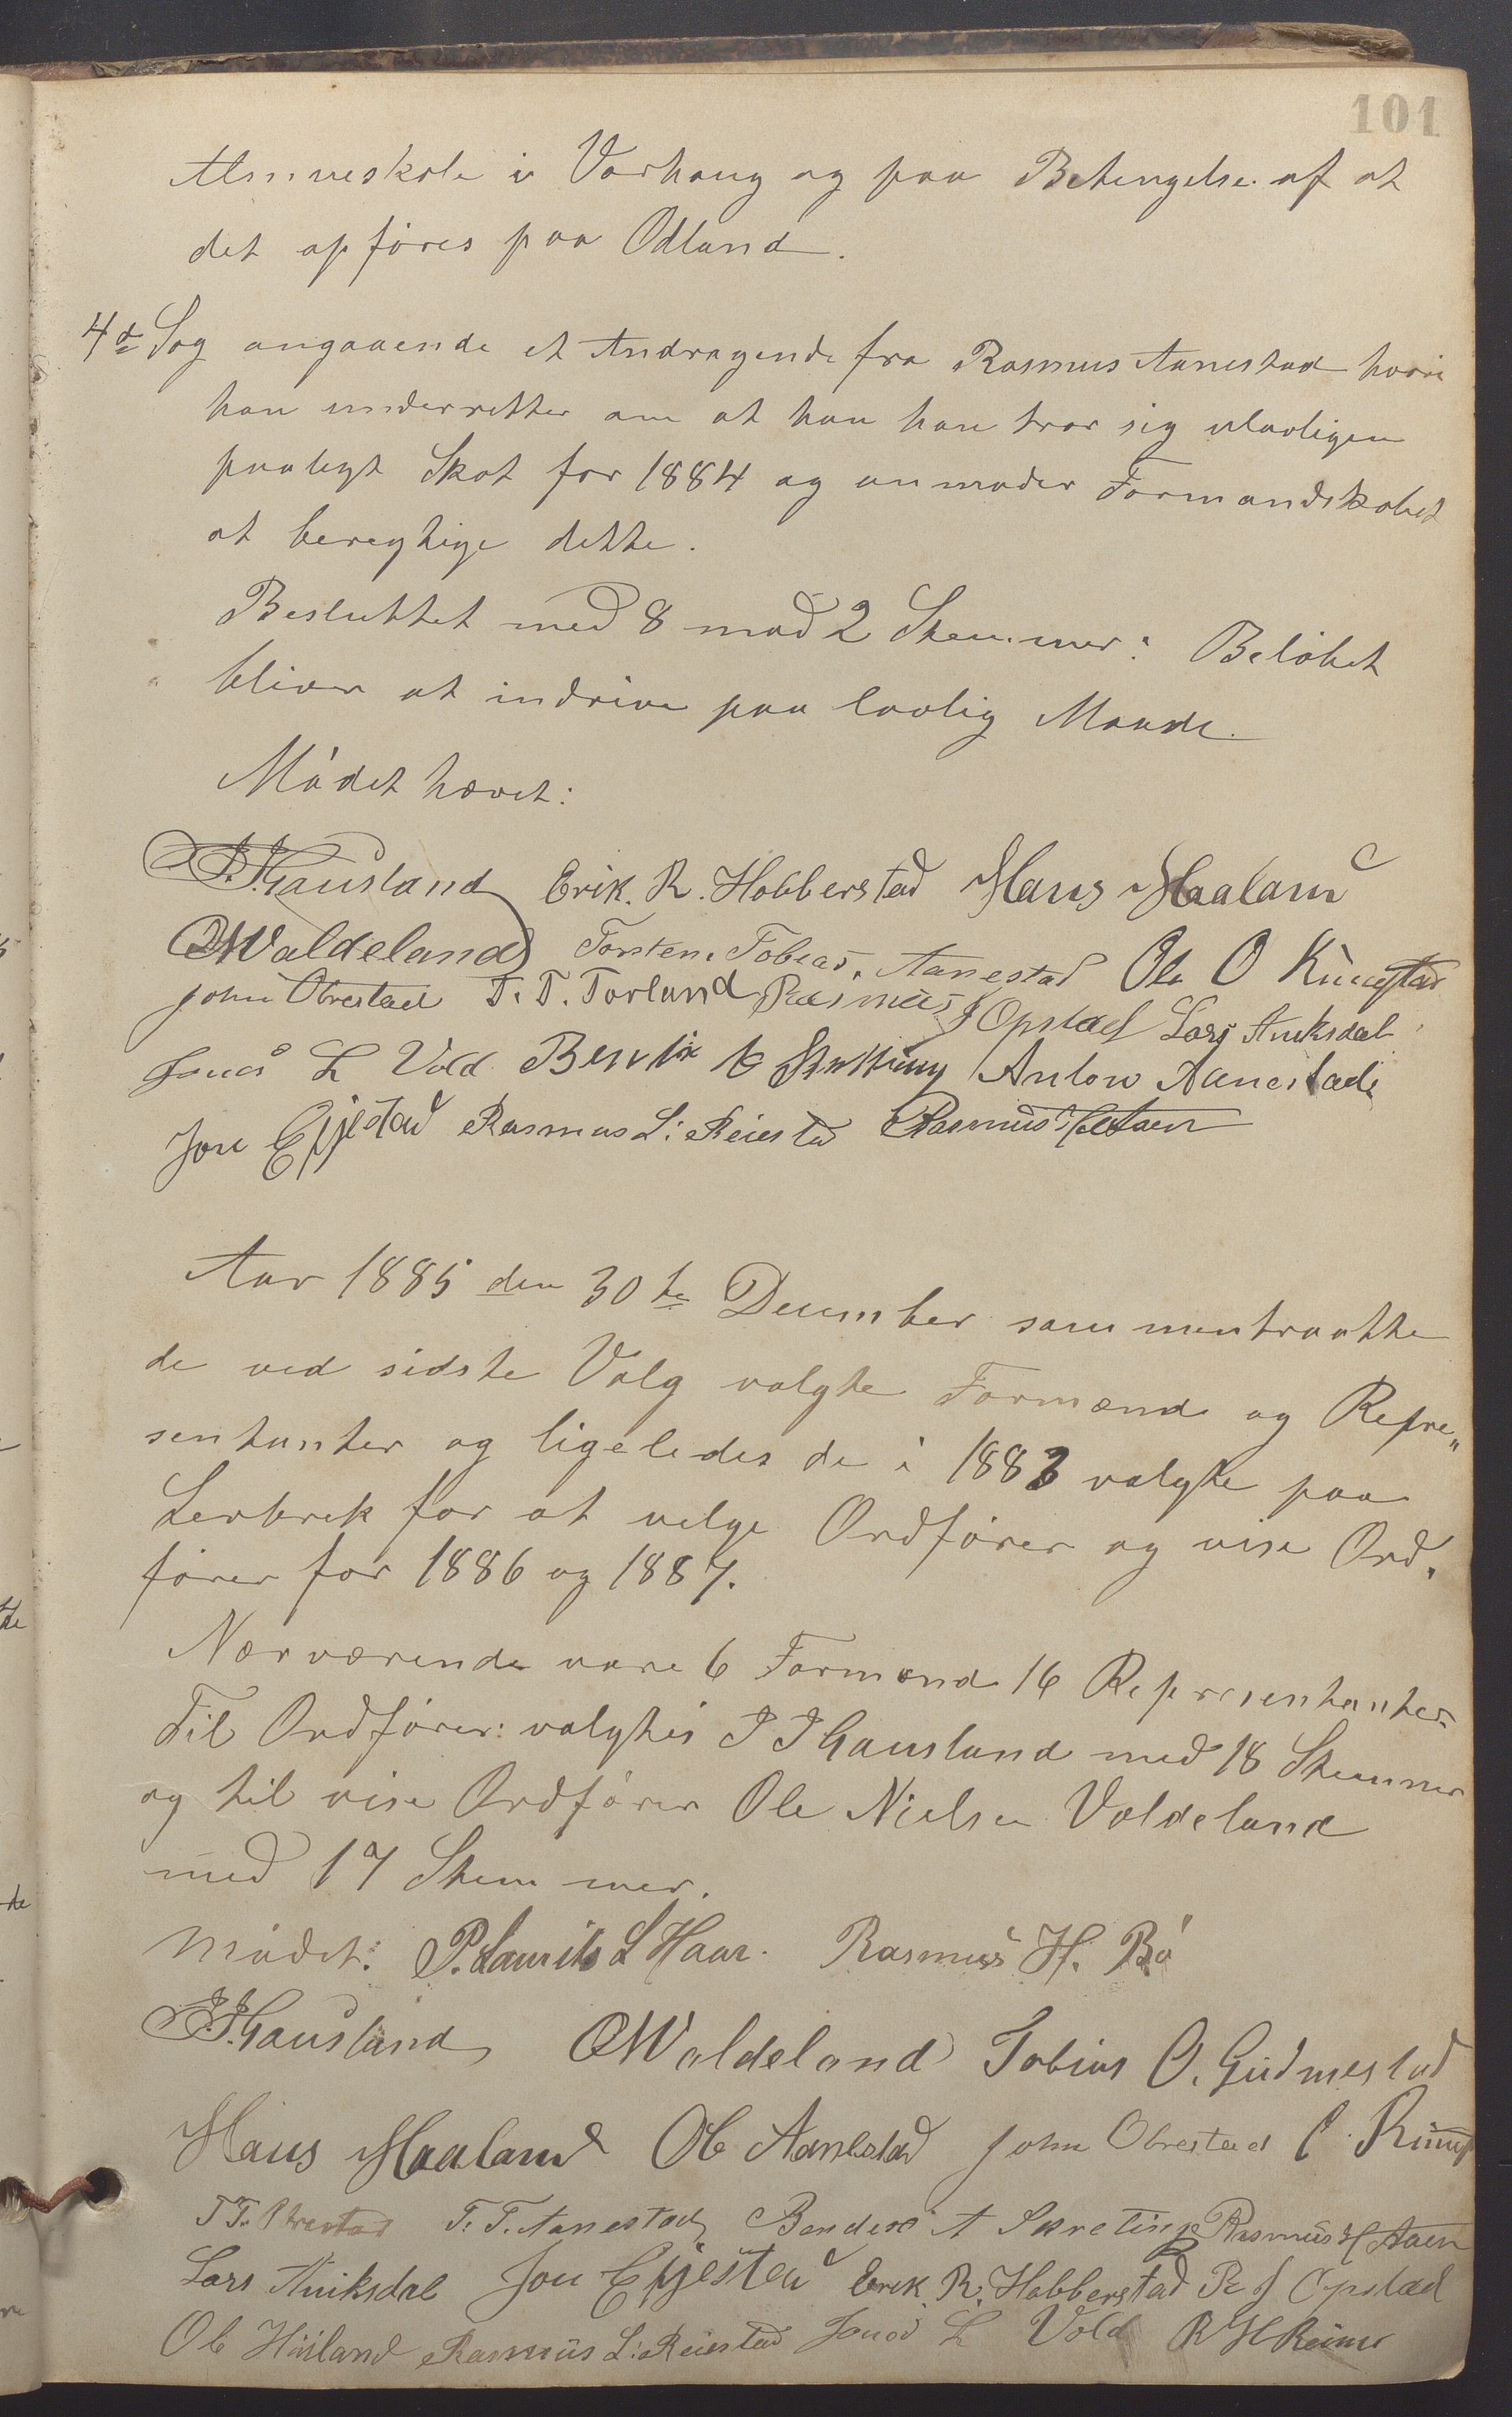 101
Almueskole i Varhaug og paa Betengelse af at
det opføres paa Odland.
4de Sag angaaende et Andragende fra Rasmus Aanestad hvori
han underretter om at han han tror sig ulovligen
paalegt Skat for 1884 og anmoder Formandskabet
at beregtige dette.
Besluttet med 8 mod 2 Stemmer: Beløbet
bliver at indrive paa lovlig Maade.
Mødet hævet:
J. J. Gausland Erik. R. Hobberstad Hans Haaland
ON Valdeland Torsten. Tobias. Aanestad Ole O Ringstad
John Obrestad T. T. Torland Rasmus J Opstad Lars Auksdal
Jonas L Vold Bendix Skretting Anton Aanestad
Jon Egjestad Rasmus L: Reiestad Rasmus H Aaen
Aar 1885 den 30te December sammentraatte
de ved sidste Valg valgte Formænd og Repre„
sentanter og ligeledes de i 1883 valgte paa
Lerbrek for at velge Ordfører og vise Ord„
fører for 1886 og 1887.
Nærværende vare 6 Formænd 16 Representanter
Til Ordfører: valgtes J J Gausland med 18 Stemmer
og til vise Ordfører Ole Nielsen Valdeland
med 17 Stemmer.
Mødet: P. Laurits L Haar. Rasmus H. Bø
J. J. Gausland ON Valdeland Tobias O. Gudmestad
Hans Haaland Ole Aanestad John Obrestad O. Ringst
T T. Obrestad T. T. Aanestad Bendix A Skretting Rasmus H Aaen
Lars Auksdal Jon Egjestad Erik. R. Hobberstad R J Opstad
Ole Høiland Rasmus L: Reiestad Jonas L Vold R H Reime